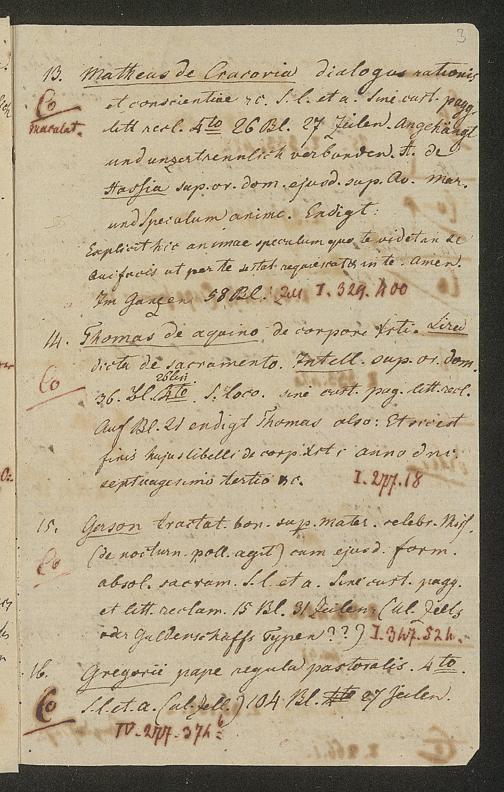 3
13. Matheus de Cracovia dialogus rationis
Co et conscientiae rc. S. l. et a. Sine cust. pagg.
maculat. litt recl. 4to 26 Bl. 27 Zeilen. Angehängt
und unzertrennlich verbunden. H. de
Hassia sup. or. dom. ejusd. sup. Av. Mar.
und Speculum anime. Endigt:
Explicit hic animae speculum quo te videtan
in te. Amen.
Im Ganzen 58 Bl. I. 329. 400
14. Thomas de aquino de corpore Xsti. Item
Co dicta de sacramento. Intell. sup. or. dom.
26 Zeilen
36. Bl. 4to S. loco. sine cust. pag. litt. recl.
Auf Bl. 21 endigt Thomas also: Et sic est
finis hujus libelli de corp. Xst i anno dni.
septuagesimo tertio rc. I. 277. 18
15. Gerson tractat. bon. sup. mater. celebr. Miss.
Co (de nocturn. poll. agit) cum ejusd. form.
absol. sacram. S. l. et a. Sine cust. pagg.
et litt. reclam. 15 Bl. 31 Zeilen (Ul. Zells
oder Guldenschaffs Typen ??) I. 347. 524.
16. Gregorii pape regula pastoralis. 4to.
Co S. l. et. a. (Ul. Zell.) 104. Bl. 4to 27 Zeilen.
IV. 277. 374 b